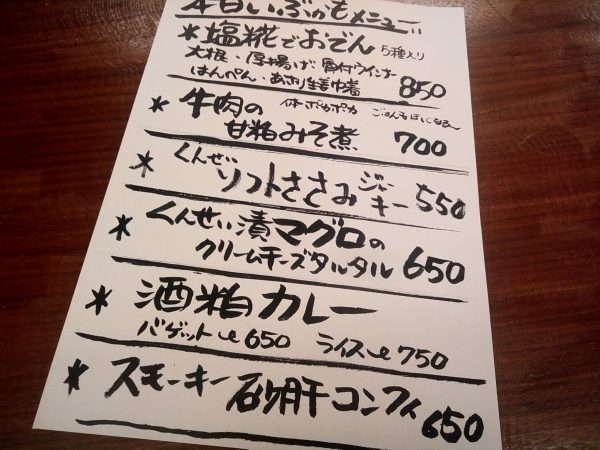 本日いぶかもメニュー
*塩糀でおでん 5種入り
大根・厚揚げ・骨付ウインナー
はんぺん・あさり生姜巾着 850
*牛肉の 体ポカポカ ごはんもほしくなる〜
甘粕みそ煮 700
*くんせい
ソフトささみジャーキー 550
*くんせい漬マグロの
クリームチーズタルタル 650
*酒粕カレー
バゲット 650 ライス 750
*スモーキー砂肝コンフィ 650